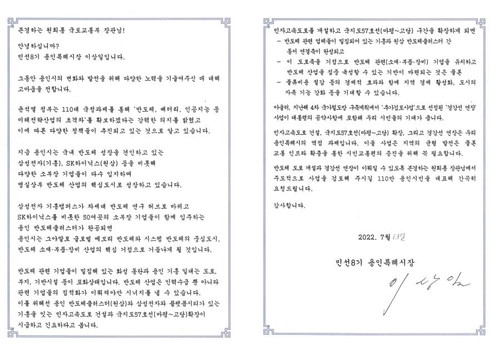 존경하는 원희룡 국토교통부 장관님!
안녕하십니까?
민선8기 용인특례시장 이상일입니다.
그동안 용인시의 변화와 발전을 위해 다양한 노력을 기울여주신 데 대해
고마움을 전합니다.
윤석열 정부는 110대 국정과제를 통해 '반도체, 배터리, 인공지능 등
미래전략산업의 초격차'를 확보하겠다는 강력한 의지를 밝혔고
이에 따른 다양한 정책들이 추진되고 있는 것으로 알고 있습니다.
지금 용인시는 국내 반도체 성장을 견인하고 있는
삼성전자(기흥), SK하이닉스(원삼) 등을 비롯해
다양한 소부장 기업들이 다수 입지하며
명실상부 반도체 산업의 핵심도시로 성장하고 있습니다.
삼성전자 기흥캠퍼스가 차세대 반도체 연구 허브로 바뀌고
SK하이닉스를 비롯한 50여곳의 소부장 기업들이 함께 입주하는
용인 반도체클러스터가 완공되면
용인시는 그야말로 글로벌 메모리 반도체와 시스템 반도체의 중심도시,
반도체 소재·부품·장비 산업의 핵심 거점으로 거듭나게 될 것입니다.
반도체 관련 기업들이 밀집해 있는 화성 동탄과 용인 기흥 일대는 도로,
부지, 기반시설 등이 포화상태입니다. 반도체 산업은 인력수급 뿐 아니라
관련 기업들의 집적화가 이뤄져야만 시너지를 낼 수 있습니다.
이를 위해선 용인 반도체클러스터(원삼)와 삼성전자와 플랫폼시티가 있는
기흥을 잇는 민자고속도로 건설과 국지도57호선(마평~고당)확장이
시급하고 긴요하다고 봅니다.
민자고속도로를 개설하고 국지도57호선(마평~고당) 구간을 확장하게 되면
- 반도체 관련 업체들이 밀집되어 있는 기흥과 원삼 반도체클러스터간
동서 연결축이 완성되고
- 이 도로축을 거점으로 반도체 관련(소재·부품·장비) 기업을 유치하고
반도체 산업을 집중 육성할 수 있는 기반이 마련되는 것은 물론
- 물류비용 절감 등의 경제적 효과와 함께 지역 경제 활성화, 도시의
자족 기능 강화 등을 기대할 수 있습니다.
아울러, 지난해 4차 국가철도망 구축계획에서 '추가검토사업'으로 선정된 '경강선 연장'
사업이 대통령의 공약사항에 포함돼 우리 시민들의 기대가 큽니다.
민자고속도로 건설, 국지도57호선(마평~고당) 확장, 그리고 경강선 연장은 우리
용인특례시의 역점 과제입니다. 이들 사업은 지역의 균형 발전은 물론
교통 인프라 확충을 통한 시민교통편의 증진을 위해 꼭 필요합니다.
반도체 도로 개설과 경강선 연장이 이뤄질 수 있도록 존경하는 원희룡 장관님께서
주도적으로 사업을 검토해 주시길 110만 용인시민을 대표해 간곡히
요청드립니다.
감사합니다.
2022. 7월 13일
민선8기 용인특례시장
이상일